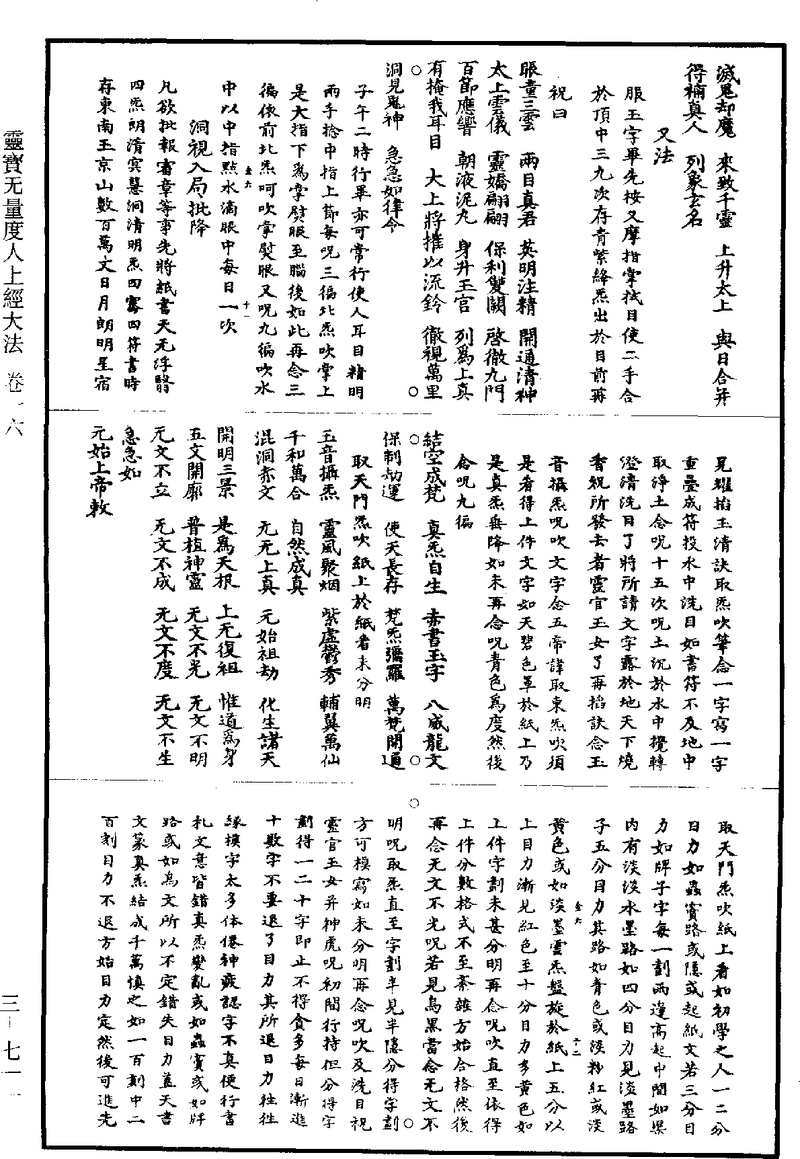 滅鬼却魔　來致千靈　上升太上　與日合并
得補真人　列象玄名
又法
服玉字畢先按叉摩指掌拭目使二手合
於頂中三九次存青紫絳炁出於目前再
祝曰
眼童三雲　兩目真君　英明注精　開通清神
太上雲儀　靈嬌翩翩　保利雙闕　啓徹九門
百節應響　朝液泥丸　身升玉宮　列爲上真
有掩我耳目　太上將摧以流鈴　徹視萬里
洞見鬼神　急急如律令
子午二時行畢亦可常行使人耳目精明
兩手捻中指上節每呪三徧北炁吹掌上
是大指下爲掌熨眼至腦後如此再念三
徧依前北炁呵吹掌熨眼又呪九徧吹水
中以中指點水滴眼中每日一次
洞視入局批降
凡欲批報審章等事先將紙書天无浮翳
四炁朗清寅慧洞清明炁四霱四符書時
存東南玉京山數百萬丈日月朗明星宿
晃耀掐玉清訣取炁吹筆念一字寫一字
重疊成符投水中洗目如書符不及地中
取淨土念呪十五次呪土沉於水中攪轉
澄清洗目了將所請文字露於地天下燒
香祝所發去者靈官玉女了再掐訣念玉
音攝炁呪吹文字念五帝諱取東炁吹須
是看得上件文字如天碧色罩於紙上乃
是真炁垂降如未再念呪青色爲度然後
念呪九徧
結空成梵　真炁自生　赤書玉字　八威龍文
保制劫運　使天長存　梵炁彌羅　萬梵開通
取天門炁吹紙上於紙看未分明
玉音攝炁　靈風聚烟　紫虛鬱秀　輔翼萬仙
千和萬合　自然成真
混洞赤文　无无上真　元始祖劫　化生諸天
開明三景　是爲天根　上无復祖　惟道爲身
五文開廓　普植神靈　无文不光　无文不明
无文不立　无文不成　无文不度　无文不生
急急如
元始上帝敕
取天門炁吹紙上看如初學之人一二分
目力如蟲竇路或隱或起紙文若三分目
力如牌子字每一劃兩邊高起中間如黑
內有淡淡水墨路如四分目力見淡墨路
子五分目力其路如青色或淡粉紅或淡
黃色或如淡墨雲炁盤旋於紙上五分以
上目力漸見紅色至十分目力多黃色如
上件字劃未甚分明再念呪吹直至依得
上件分數格式不至紊雜方始合格然後
再念无文不光呪若見烏黑當念无文不
明呪取炁直至字劃半見半隱分得字劃
方可模寫如未分明再念呪吹及洗目祝
靈官玉女并神虎呪初間行持但分得字
劃得一二十字即止不得貪多每日漸進
十數字不要退了目力其所退目力往往
緣摸字太多体倦神疲認字不真便行書
札文意皆錯真炁變亂或如蟲竇或如牌
路或如鳥文所以不定錯失目力蓋天書
文篆真炁結成千萬慎之如一百劃中二
百刻目力不退方始目力定然後可進先
靈寶无量度人上經大法　卷一六
三–七一一